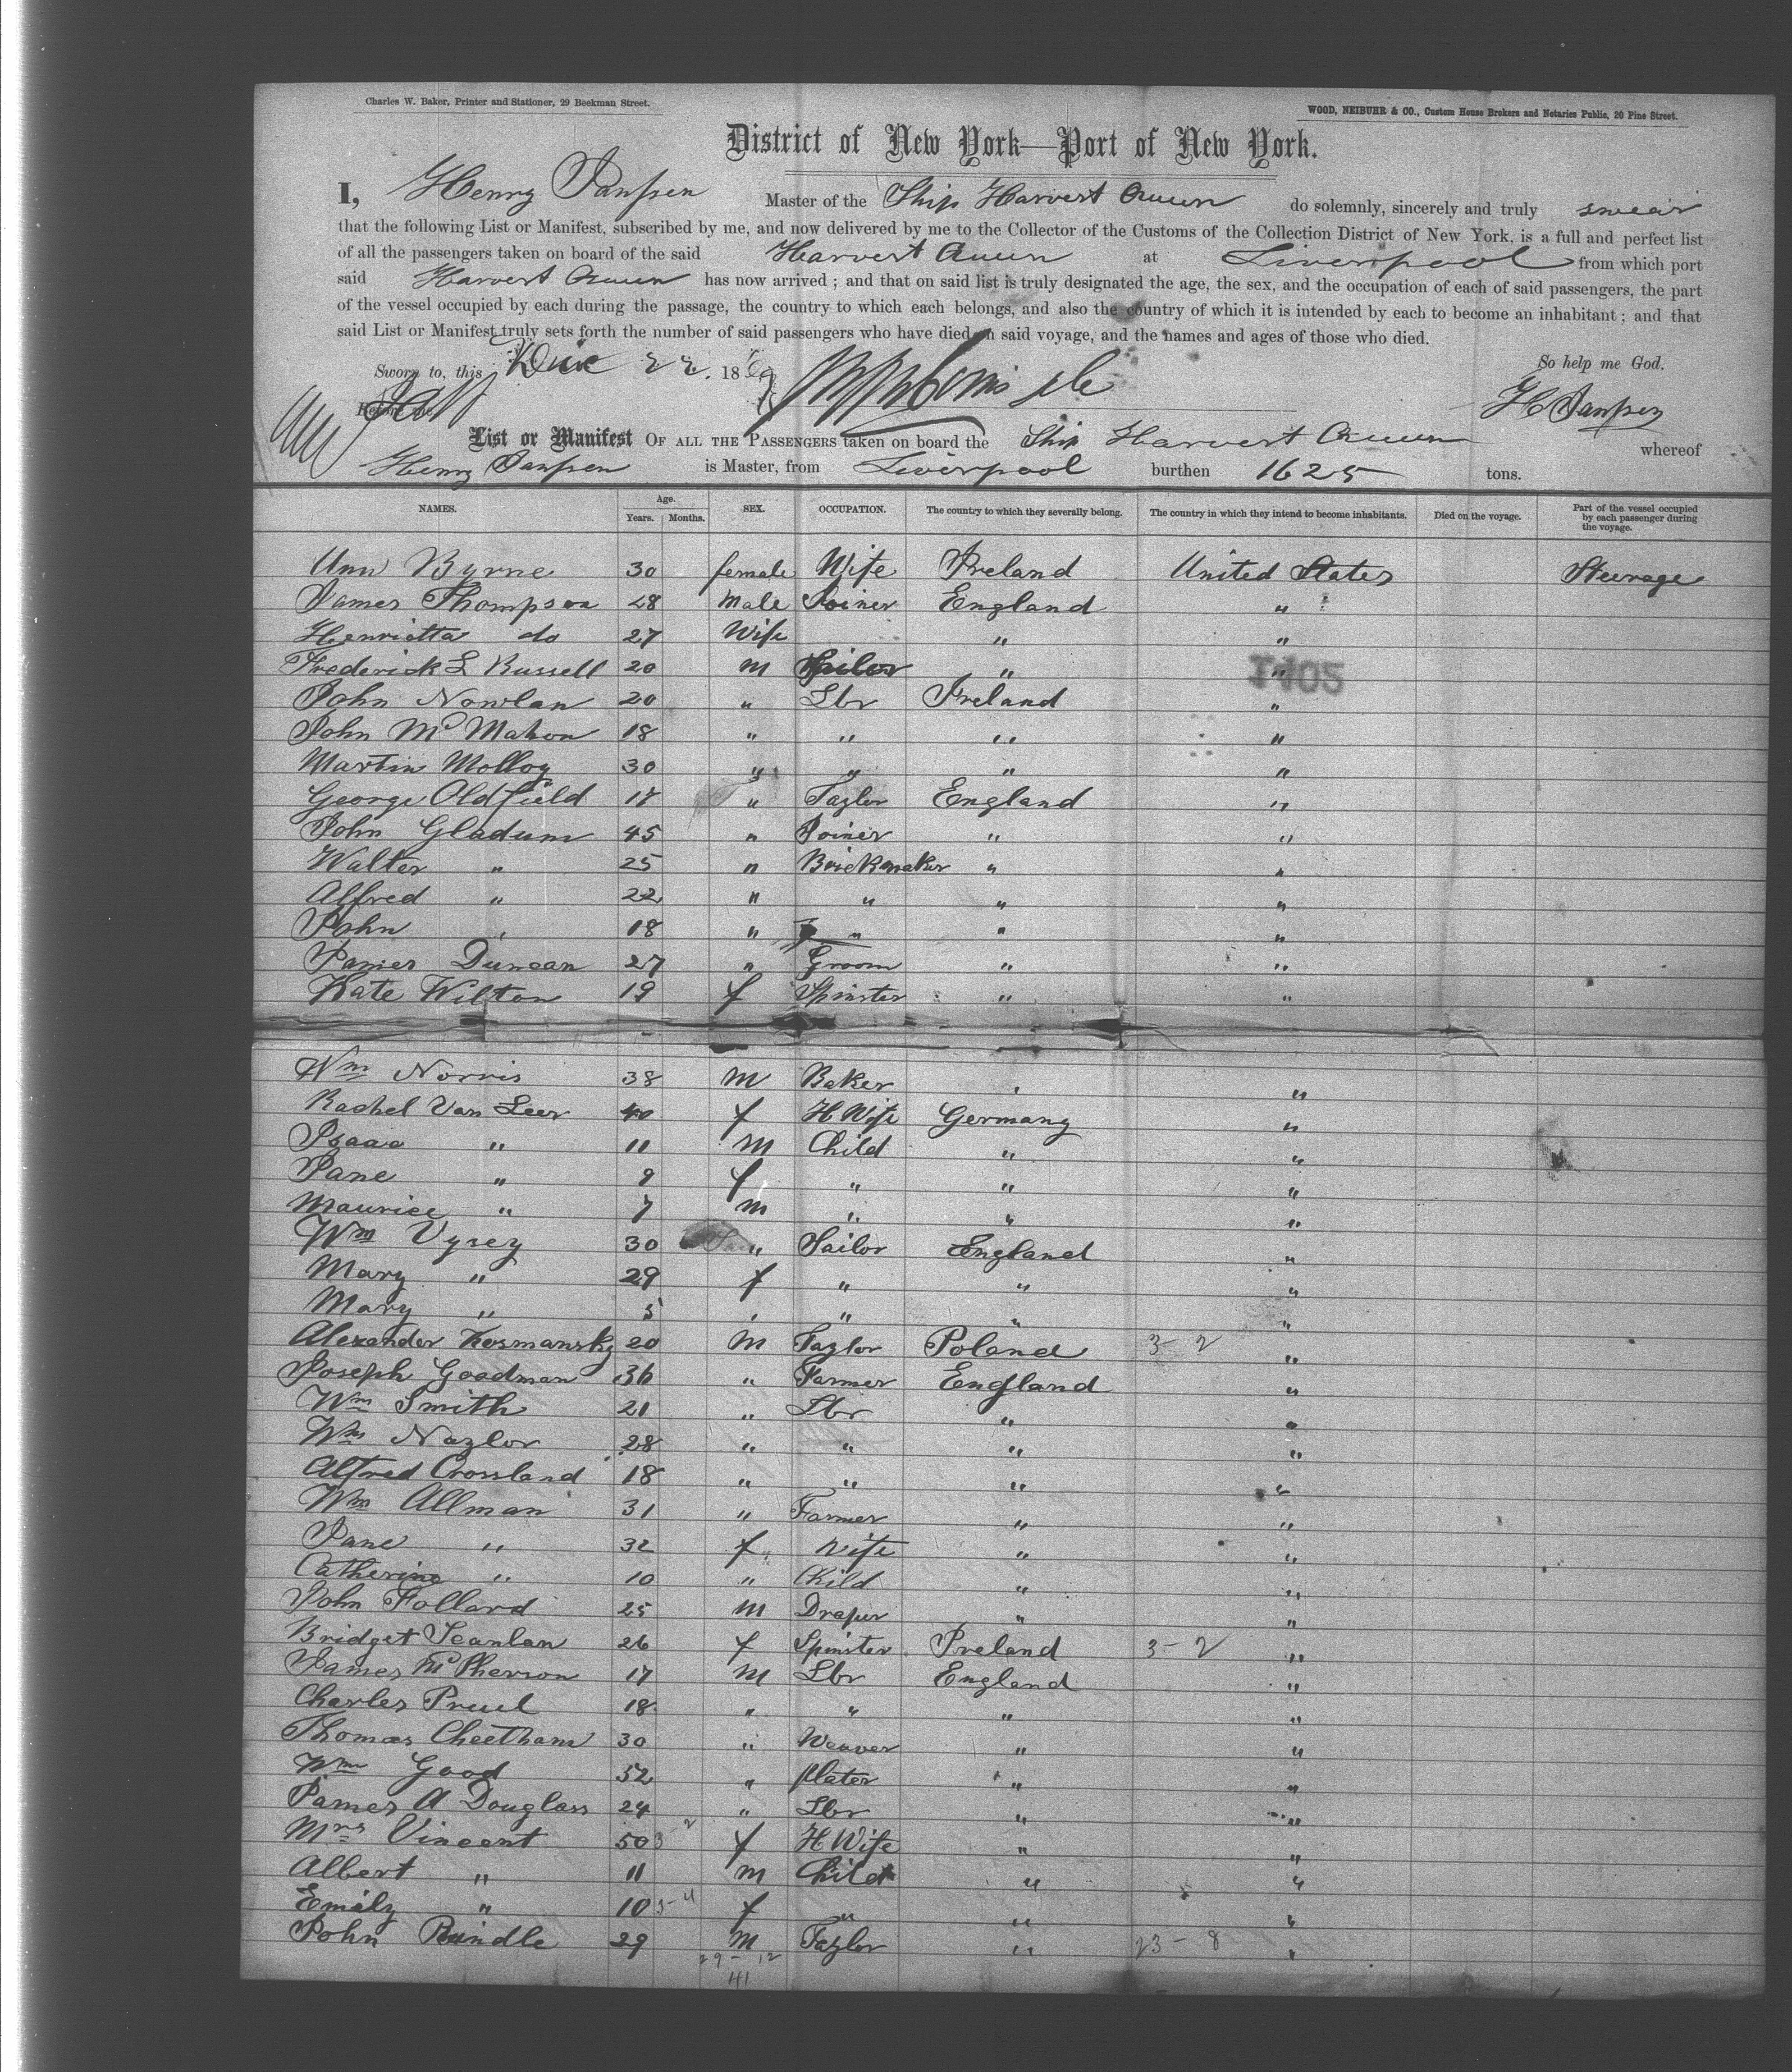 Charles W. Baker, Printer and Stationer, 29 Beekman Street.
WOOD, NEIBUHR & CO., Custom House Brokers and Notaries Public, 20 Pine Street.
District of New York—Port of New York.
I, Henry Janssen Master of the Ship Harvest Queen do solemnly, sincerely and truly swear
that the following List or Manifest, subscribed by me, and now delivered by me to the Collector of the Customs of the Collection District of New York, is a full and perfect list
of all the passengers taken on board of the said Harvest Queen at Liverpool from which port
said Harvest Queen has now arrived ; and that on said list is truly designated the age, the sex, and the occupation of each of said passengers, the part
of the vessel occupied by each during the passage, the country to which each belongs, and also the country of which it is intended by each to become an inhabitant ; and that
said List or Manifest truly sets forth the number of said passengers who have died on said voyage, and the names and ages of those who died.
So help me God.
Sworn to, this 22. 1869
Before me H Janssen
List or Manifest OF ALL THE PASSENGERS taken on board the Ship Harvest Queen whereof
Henry Janssen is Master, from Liverpool burthen 1625 tons.
NAMES. Age. Years. Months. SEX. OCCUPATION. The country to which they severally belong. The country in which they intend to become inhabitants. Died on the voyage. Part of the vessel occupied by each passenger during the voyage.
Ann Byrne 30 female Wife Ireland United States Steerage
James Thompson 28 Male Joiner England "
Henrietta do 27 Wife " "
Frederick L Russell 20 m " "
John Nowlan 20 " Lbr Ireland "
John McMahon 18 " " " "
Martin Molloy 30 " " " "
George Oldfield 17 " Taylor England "
John Gladum 45 " Joiner " "
Walter " 25 " Brickmaker " "
Alfred " 22 " " " "
John " 18 " " " "
James Duncan 27 " Groom " "
Kate Wilton 19 f Spinster " "
Wm Norris 38 M Baker " "
Rachel Van Leer 40 f H Wife Germany "
Isaac " 11 M Child " "
Jane " 9 f " " "
Maurice " 7 m " " "
Wm Vysey 30 " Sailor England "
Mary " 29 f " " "
Mary " 5 " " " "
Alexander Kosmansky 20 M Taylor Poland 3-2 "
Joseph Goodman 36 " Farmer England "
Wm Smith 21 " Lbr " "
Wm Naylor 28 " " " "
Alfred Crossland 18 " " " "
Wm Allman 31 " Farmer " "
Jane " 32 f Wife " "
Catherine " 10 " Child " "
John Follard 25 M Draper " "
Bridget Scanlan 26 f Spinster Ireland 3-2 "
James McPherson 17 M Lbr England "
Charles Pruel 18 " " " "
Thomas Cheetham 30 " Weaver " "
Wm Good 52 " plater " "
James A Douglass 24 " Lbr " "
Mrs Vincent 50 3-2 f H Wife " "
Albert " 11 m Child " "
Emily " 10 f " " "
John Rindle 29 M Taylor " 23-8 "
29-12
41